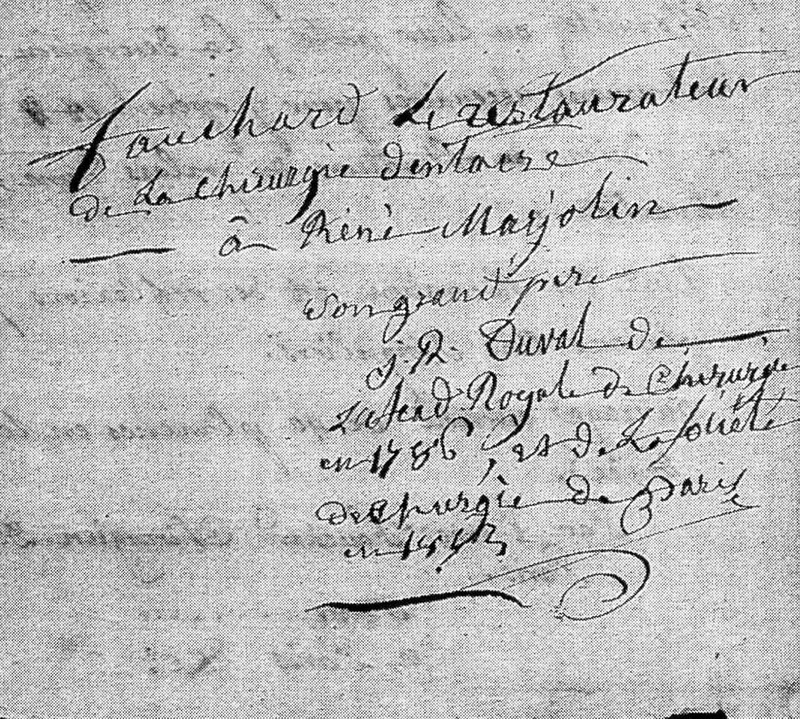 fauchard Le restaurateur
de La chirurgie dentaire
à Réné Marjolin
son grand père
J. R. Duval de
L'acad Royale de Chirurgie
en 1786, et de La société
de chirurgie de Paris
en